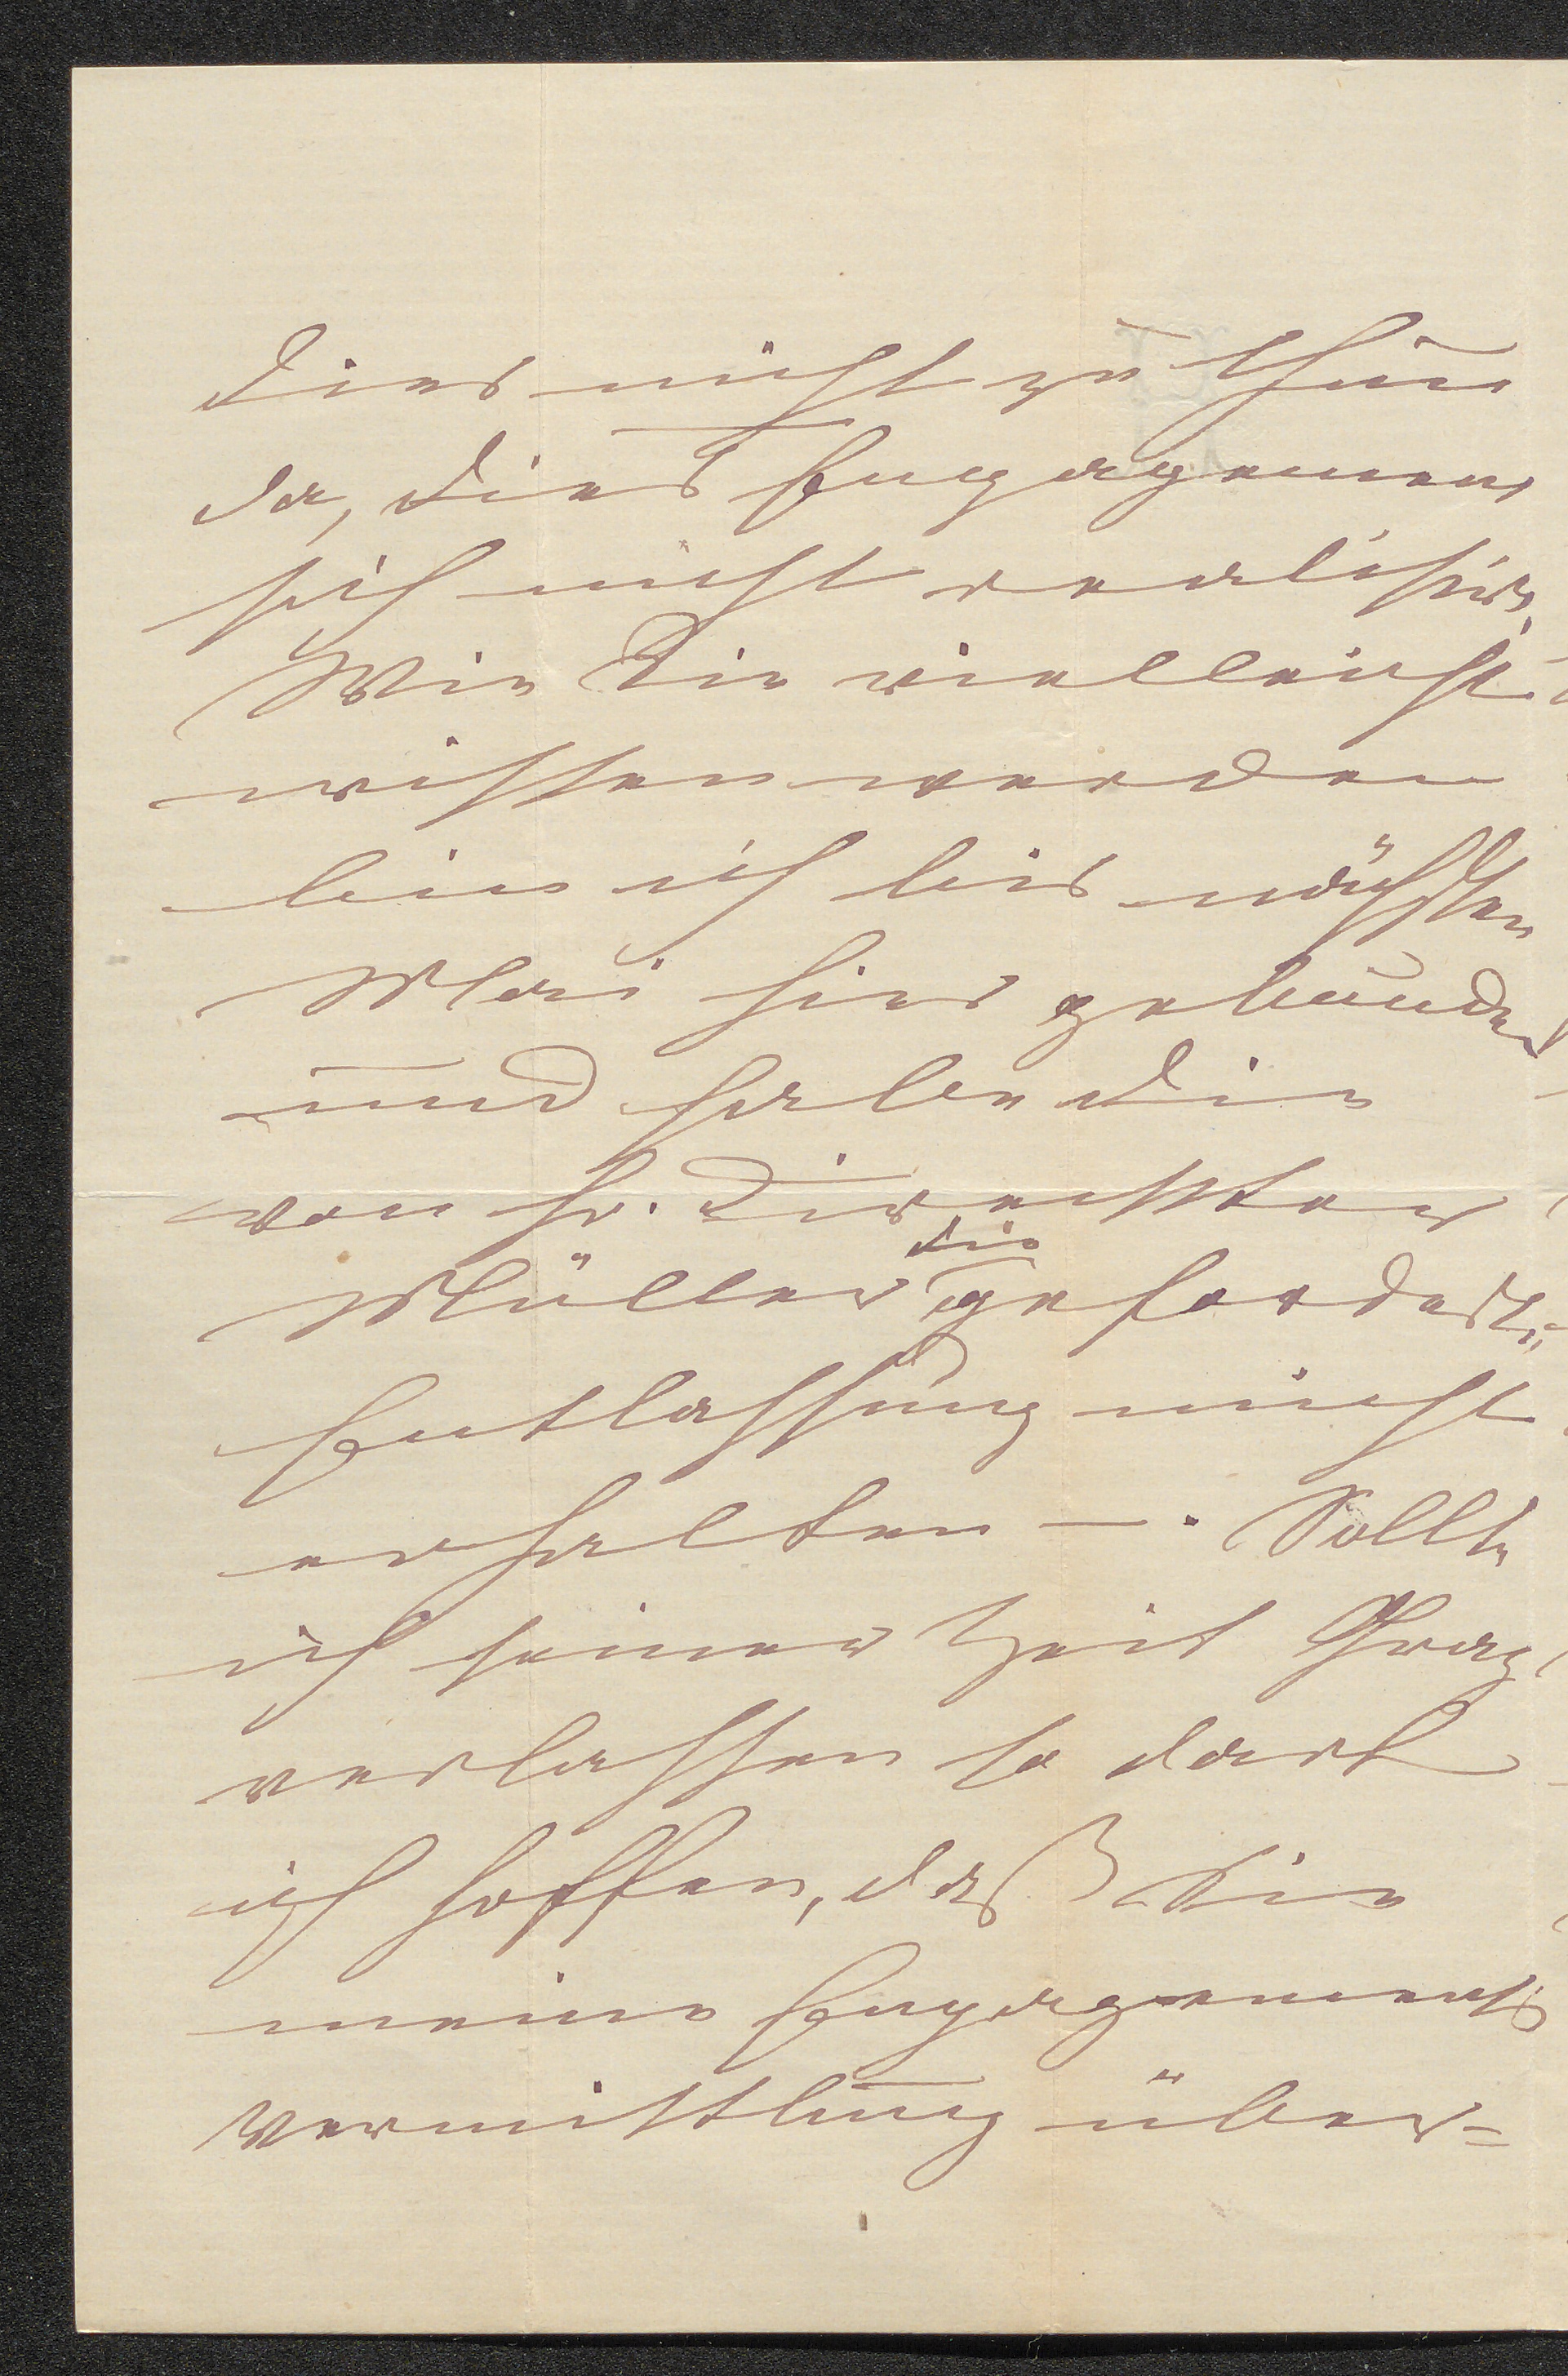 dies nicht zu thun
da, dies Engagement
sich nicht realisirt,
Wie Sie vielleicht
wissen werden
bin ich bis nächsten
Mai hier gebunden
und habe die
von H. Direcktor
Müller die geforderte
Entlassung nicht
erhalten —. Sollte
ich seiner Zeit Prag
verlassen so darf
ich hoffen, daß Sie
meine Engagements
Vermittlung über=